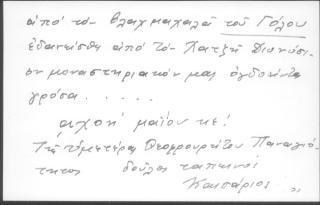 ἀπό τὸν Βλαχμαχαλᾶ τοῦ Γόλου
ἐδανείσθη ἀπό τὸν Χατζῆ Διονύσι-
ον μοναστηριακόν μας ὀγδοήντα
γρόσα.....
μαΐου κε!
Τῆς ὑμετέρας Θεοφρουρήτου Παναγιό-
τητος δοῦλος ταπεινός
Καισάριος